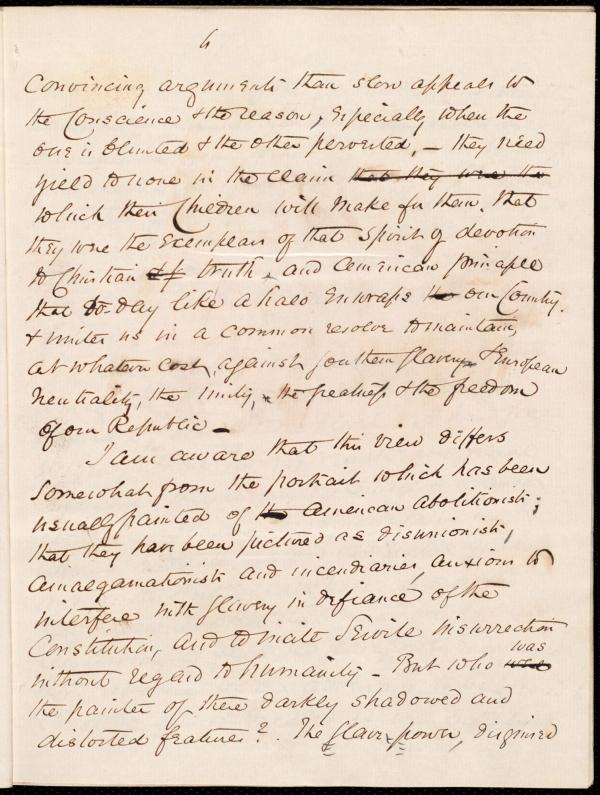 6
Convincing arguments than slow appeals to
the Conscience & the reason, Especially when the
one is blunted & the other perverted, – they need
yield to none in the claim that they were the
which their Children will make for them, that
they were the Exemplars of that Spirit of devotion
to Christian truth, and American principle
that to-day like a halo Enwraps our Country.
& unites us in a common resolve to maintain,
at whatever cost, against Southern Slavery & European
Neutrality, the Unity, the greatness & the freedom
of our Republic –
I am aware that this view differs
Somewhat from the portrait which has been
usually painted of the American abolitionists;
that they have been pictured as disunionists,
Amalgamationists and incendiaries, anxious to
interfere with Slavery in defiance of the
Constitution, and to incite Servile insurrection
without regard to humanity – But who were was
the painter of these darkly shadowed and
distorted features? The Slave-power, disguised